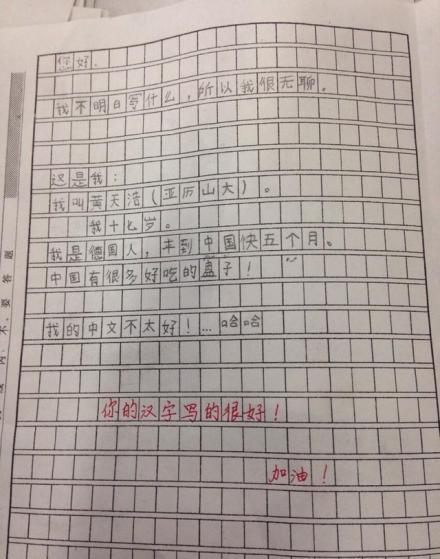 你好.
我不明白写什么,所以我很无聊。
这是我:
我叫黄天浩(亚历山大)。
我十七岁。
我是德国人,来到中国快五个月。
中国有很多好吃的盒子!
我的中文不太好!...哈哈
你的汉字写的很好!
加油!